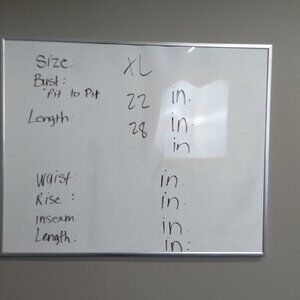 Size: XL
Bust:
"Pit to Pit 22 in.
Length: 28 in.
in
Waist: in
Rise: in.
inseam in
Length: in: